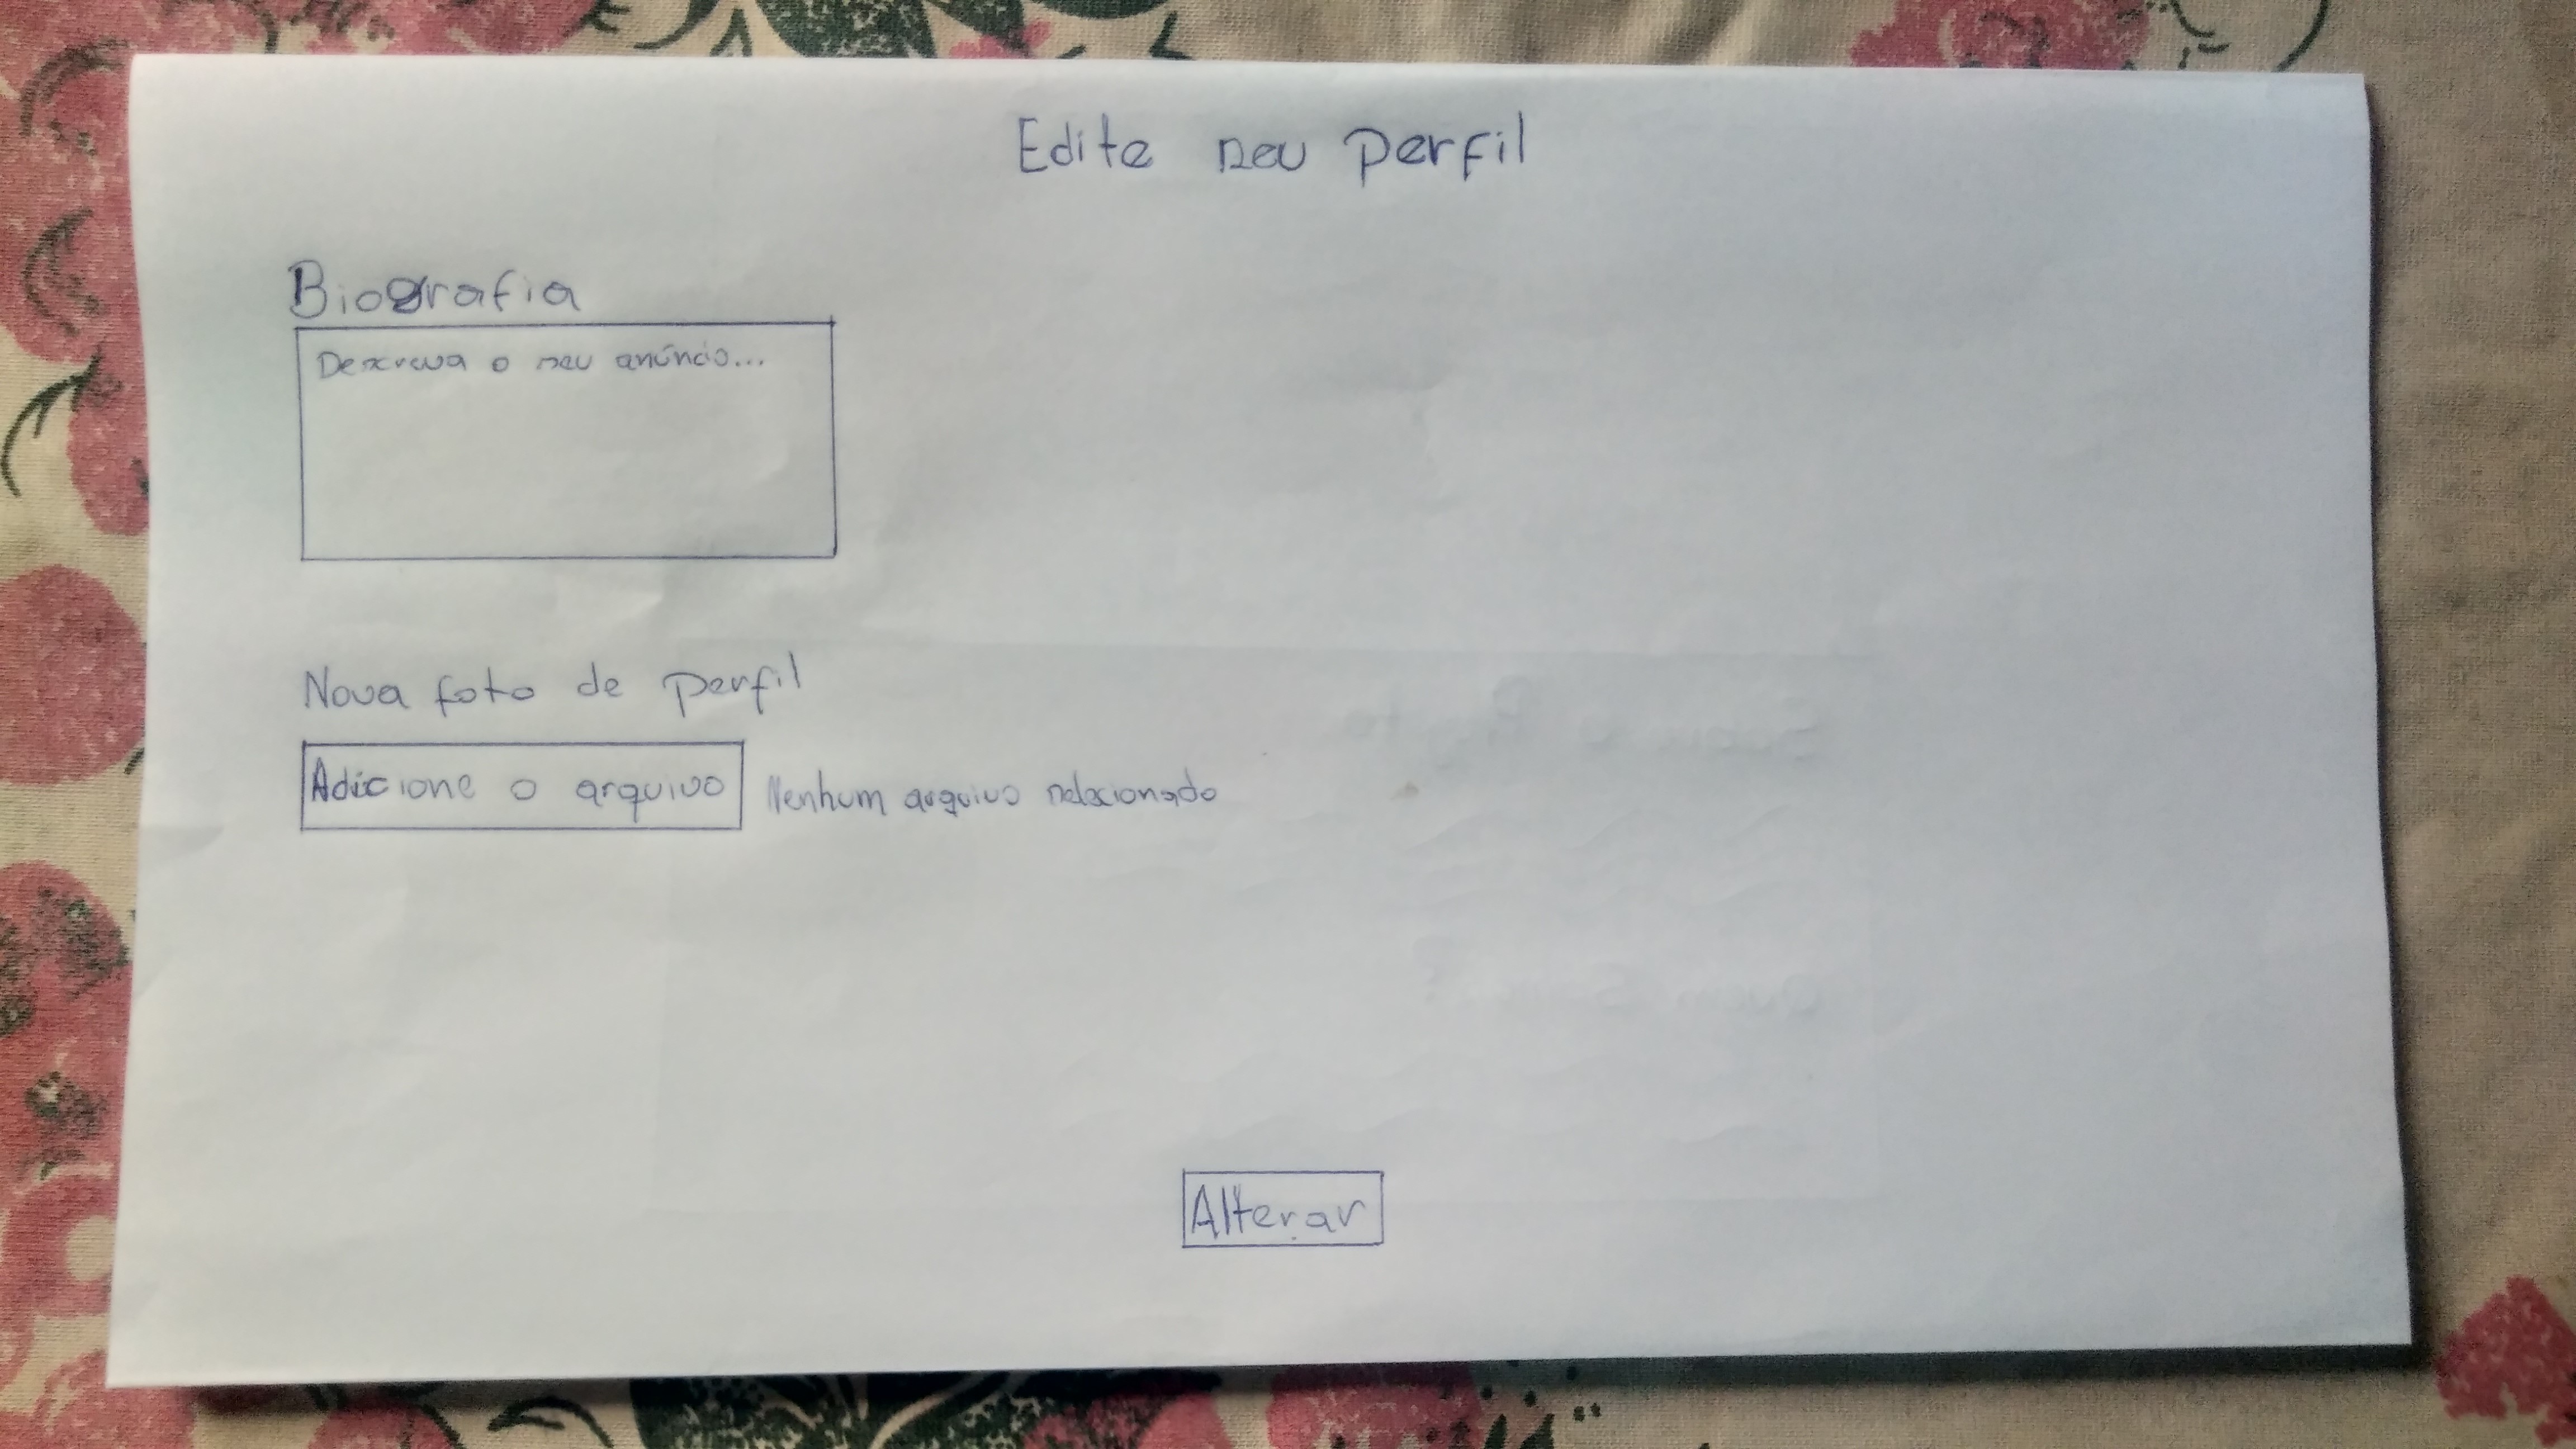 Edite seu perfil
Biografia
Descreva o seu anúncio...
Nova foto de perfil
Adicione o arquivo
Nenhum arquivo selecionado
Alterar